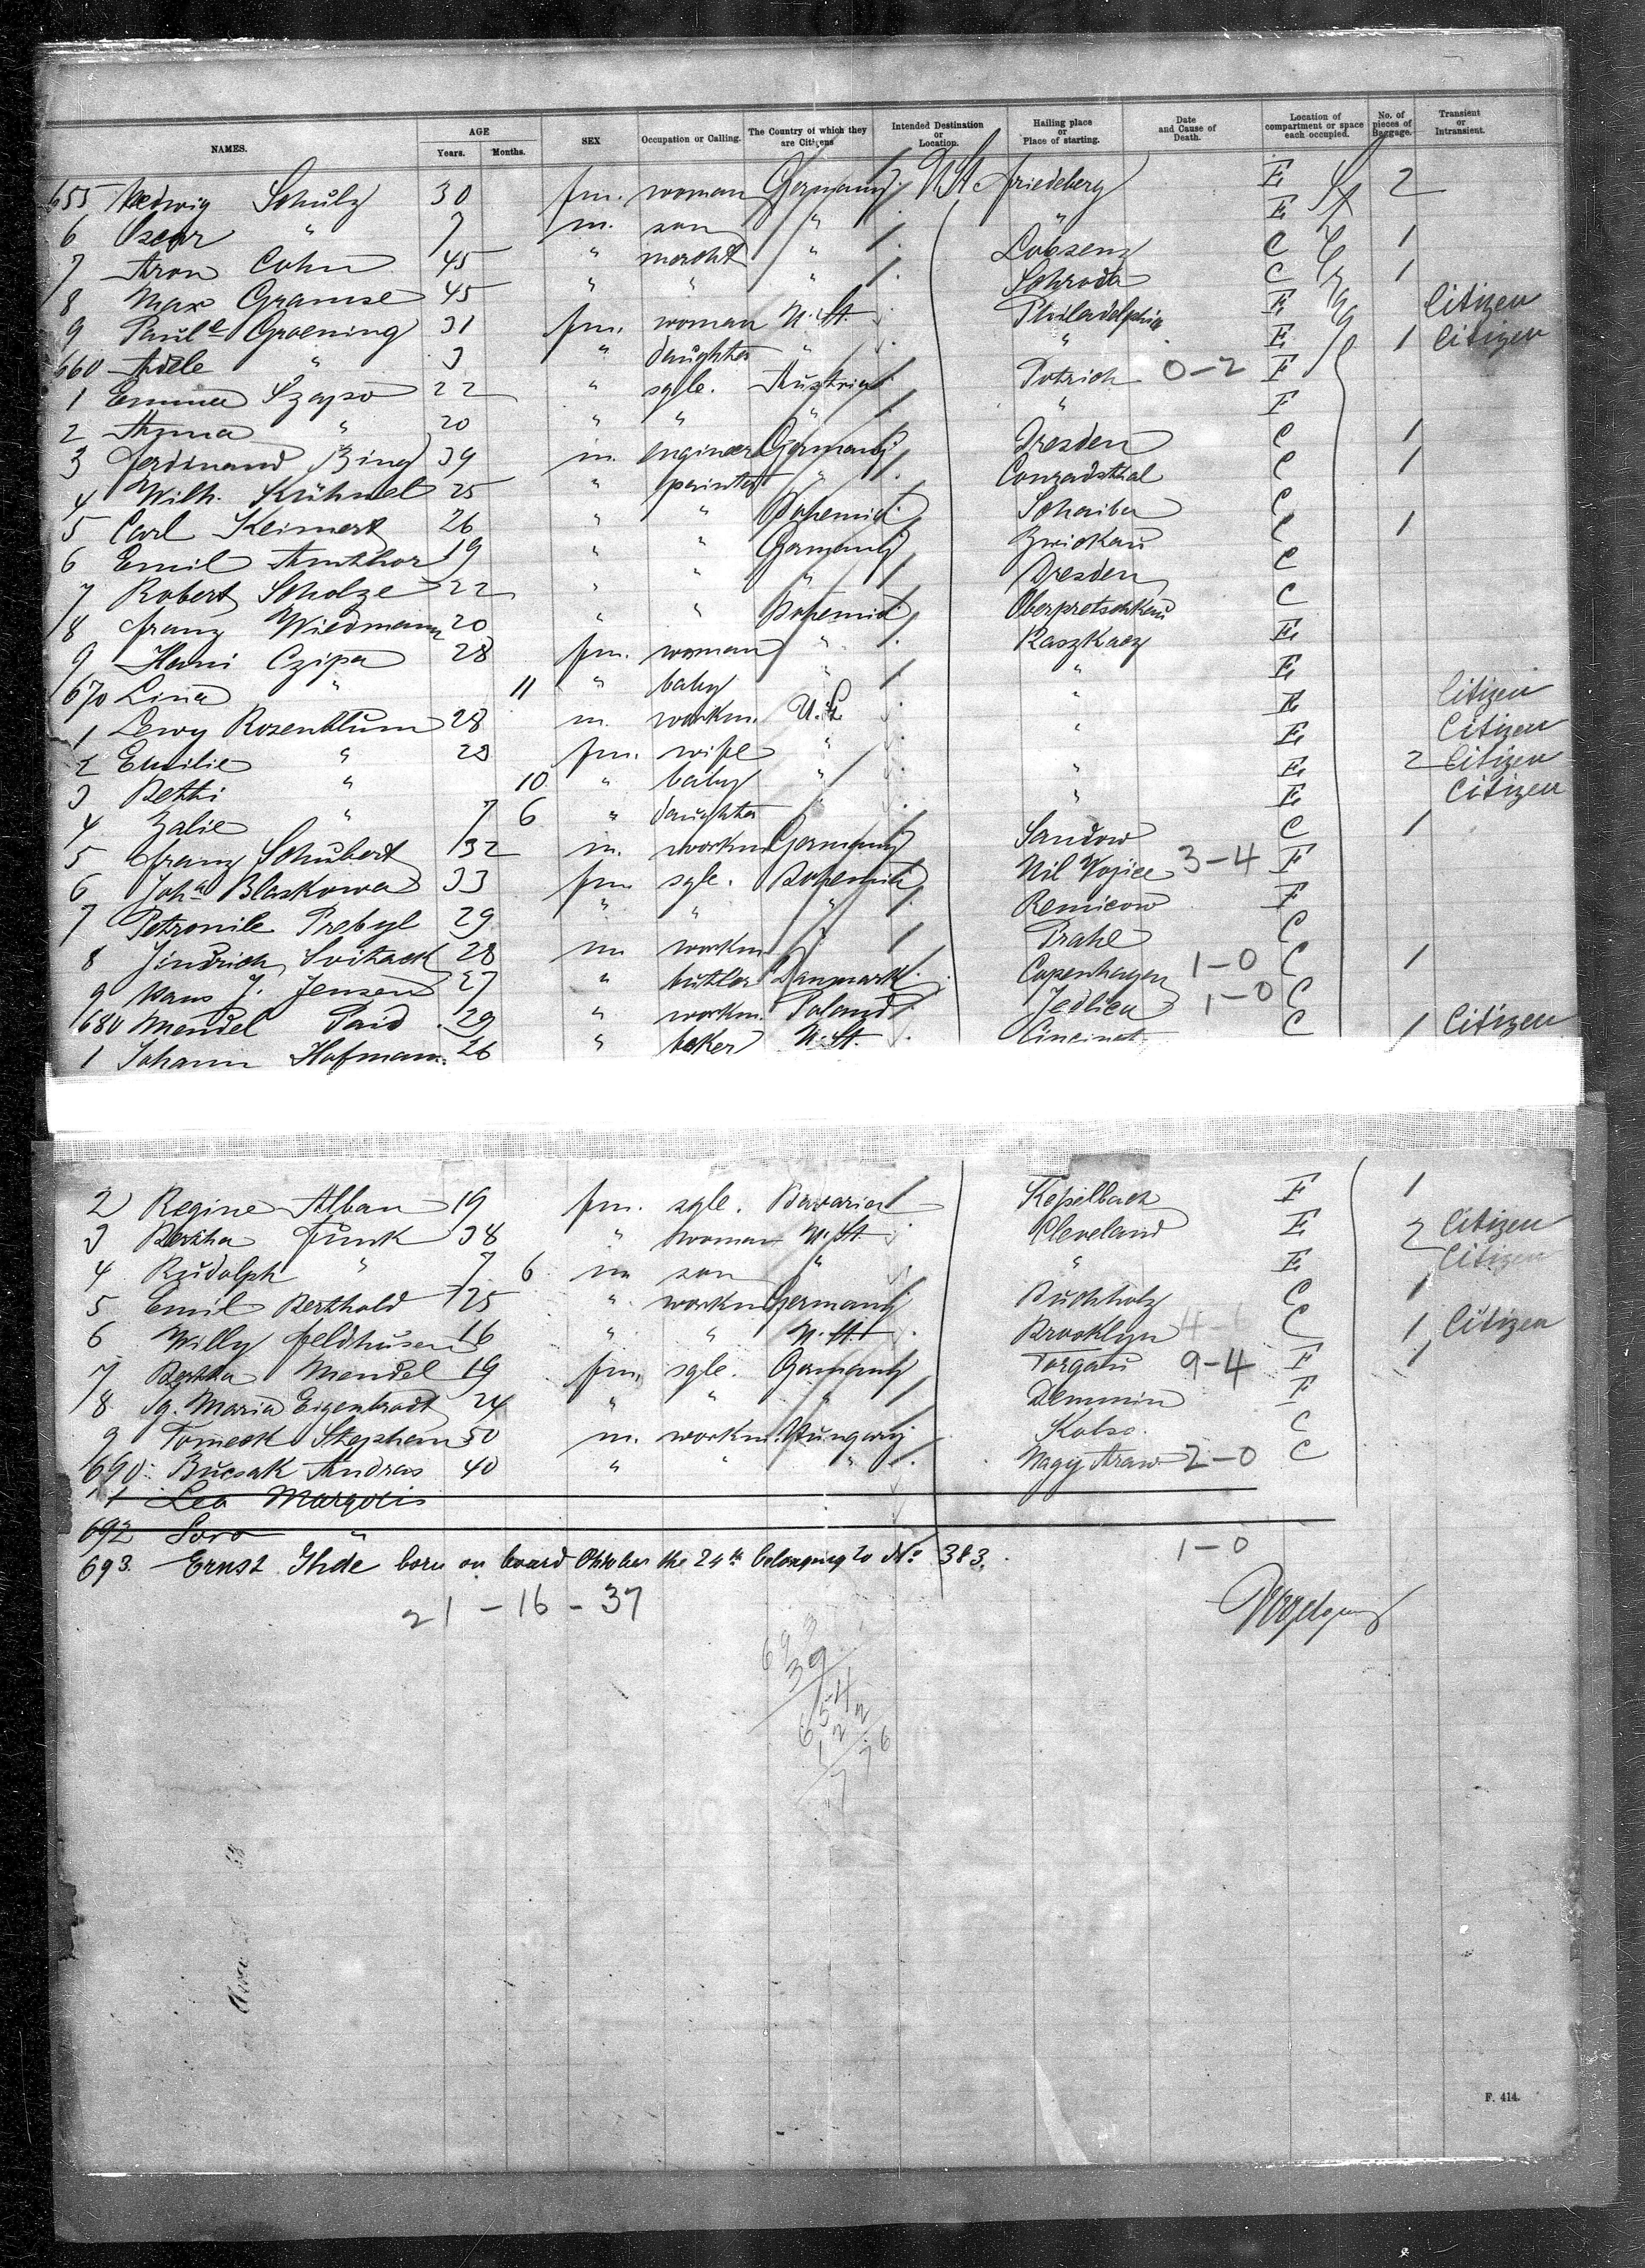 NAMES. AGE Years. Months. SEX Occupation or Calling. The Country of which they are Citizens Intended Destination or Location. Hailing place or Place of starting. Date and Cause of Death. Location of compartment or space each occupied. No. of pieces of Baggage. Transient or Intransient.
655 Hedwig Schulz 30 fm. woman Germany U St Friedeberg E 2
6 Oscar " 7 m. son " " E
7 Aron Cohn 45 " mercht " Lobsens C 1
8 Max Gramse 45 " " " Schroda C 1
9 Paule Groening 31 fm. woman U. St. Philadelphia E Citizen
660 Adele " 3 " daughter " " E 1 Citizen
1 Emma Szapo 22 " sgle. Austria Potrich 0-2 F
2 Anna " 20 " " " " F
3 Ferdinand Bing 39 m. engineer Germany Dresden C 1
4 Wilh. Kühnel 25 " painter " Conradsthal C 1
5 Carl Keimert 26 " " Bohemia Schaiba C
6 Emil Amthor 19 " " Germany Zwickau C 1
7 Robert Scholze 22 " " " Dresden C
8 Franz Wiedmann 20 " " Bohemia Oberpretschkau C
9 Hani Czipa 28 fm. woman " Kaszkacz E
670 Lina " 11 " baby " " E
1 Lewy Rosenblum 28 m. workm. U. St " E Citizen
2 Emilie " 28 fm. wife " " E Citizen
3 Betti " 10 " baby " " E 2 Citizen
4 Zalie " 7 6 " daughter " " E Citizen
5 Franz Schubert 32 m. workm Germany Sandow C 1
6 Joha Blaskowa 33 fm sgle. Bohemia Nil Wojice 3-4 F
7 Petronile Prebyl 29 " " " Remicow F
8 Jindrich Svitack 28 m workm " Prahl C
9 Hans J. Jensen 27 " butler Danmark Copenhagen 1-0 C 1
680 Mendel Said 29 " workm. Poland Jedlica 1-0 C
1 Johann Hofmann 26 " baker U. St. Cincinat C 1 Citizen
2 Regine Alban 19 fm. sgle. Bavaria Kesselbach F 1
3 Bertha Funk 38 " woman U. St Cleveland E 2 Citizen
4 Rudolph " 7 6 m son " " E Citizen
5 Emil Berthold 25 " workm Germany Buchholz C 1
6 Willy Feldhusen 16 " " U. St. Brooklyn 4-6 C 1 Citizen
7 Bertha Mendel 19 fm. sgle. Germany Torgau 9-4 F 1
8 g. Maria Eigenbrodt 24 " " " Demmin F
9 Tomeck Stephan 50 m. workm. Hungary Kolso. C
690 Bucsak Andras 40 " " " Nagy Araw 2-0 C
1 Lea Margolis
692 Soro "
693. Ernst Ihde born on board Oktober the 24th belonging to No 383. 1-0
21 - 16 - 37
693
39
654
F. 414.